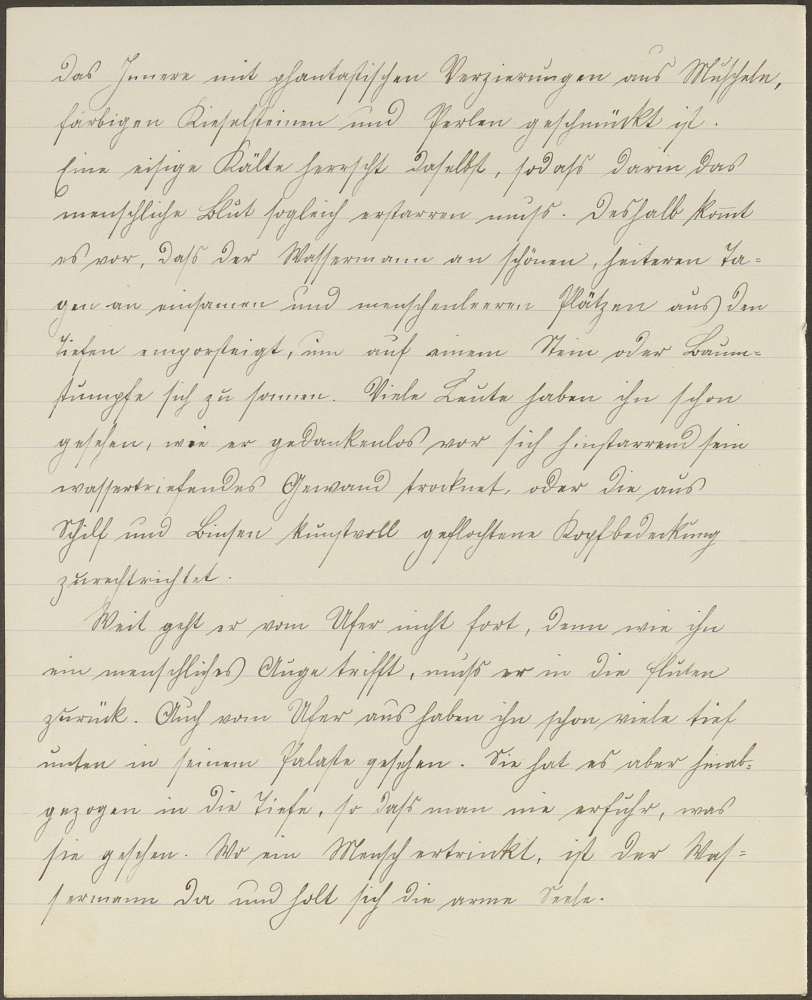 das Innere mit phantastischen Verzierungen aus Muscheln,
färbigen Kieselsteinen und Perlen geschmückt ist.
Eine eisige Kälte herrscht daselbst, sodaſs darin das
menschliche Blut sogleich erstarren muſs. Deshalb kom̄t
es vor, daſs der Wassermann an schönen, heiteren Ta=
gen an einsamen und menschenleeren Plätzen aus den
Tiefen emporsteigt, um auf einem Stein oder Baum=
stumpfe sich zu sonnen. Viele Leute haben ihn schon
gesehen, wie er gedankenlos vor sich hinstarrend sein
wassertriefendes Gewand trocknet, oder die aus
Schilf und Binsen kunstvoll geflochtene Kopfbedeckung
zurechtrichtet.
Weit geht er vom Ufer nicht fort, denn wie ihn
ein menschliches Auge trifft, muſs er in die Fluten
zurück. Auch vom Ufer aus haben ihn schon viele tief
unten in seinem Palaste gesehen. Sie hat es aber hinab=
gezogen in die Tiefe, so daſs man nie erfuhr, was
sie gesehen. Wo ein Mensch ertrinkt, ist der Was=
sermann da und holt sich die arme Seele.